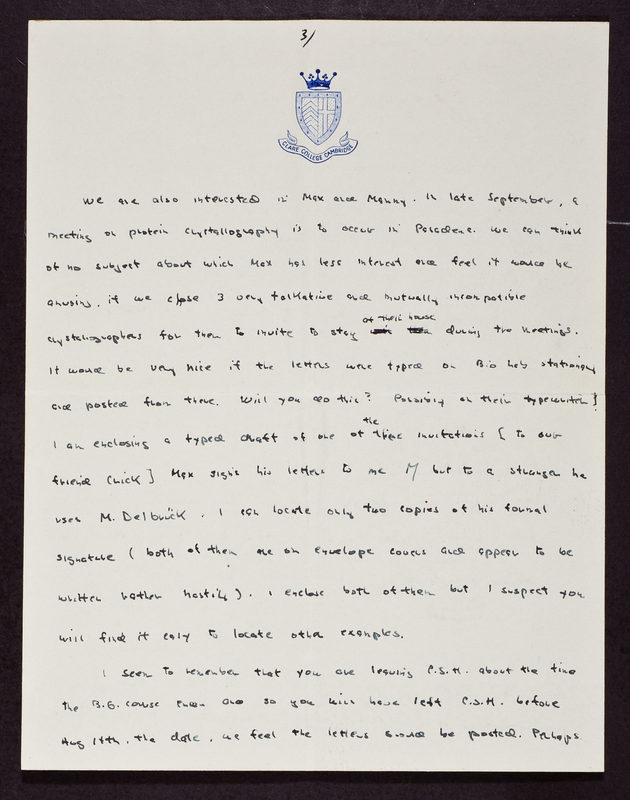 3/
CLARE COLLEGE CAMBRIDGE
We are also interested in Max and Manny. In late September, a
meeting on protein crystallography is to occur in Pasadena. We can think
of no subject about which Max has less interest and feel it would be
amusing, if we chose 3 very talkative and mutually incompatible
crystallographers for them to invite to stay at their house during the meetings.
It would be very nice if the letters were typed on Bio labs stationary
and posted from there. Will you do this? Possibly on their typewriter?
I am enclosing a typed draft of one of the invitations [ to our
friend Crick ] Max signs his letters to me M but to a stranger he
uses M. Delbrück. I can locate only two copies of his formal
signature ( both of them are on envelope covers and appear to be
written rather hastily ). I enclose both of them but I suspect you
will find it easy to locate other examples.
I seem to remember that you are leaving C.S.H. about the time
the B.G. course ends and so you will have left C.S.H. before
Aug 18th. the date, we feel the letters should be posted. Perhaps